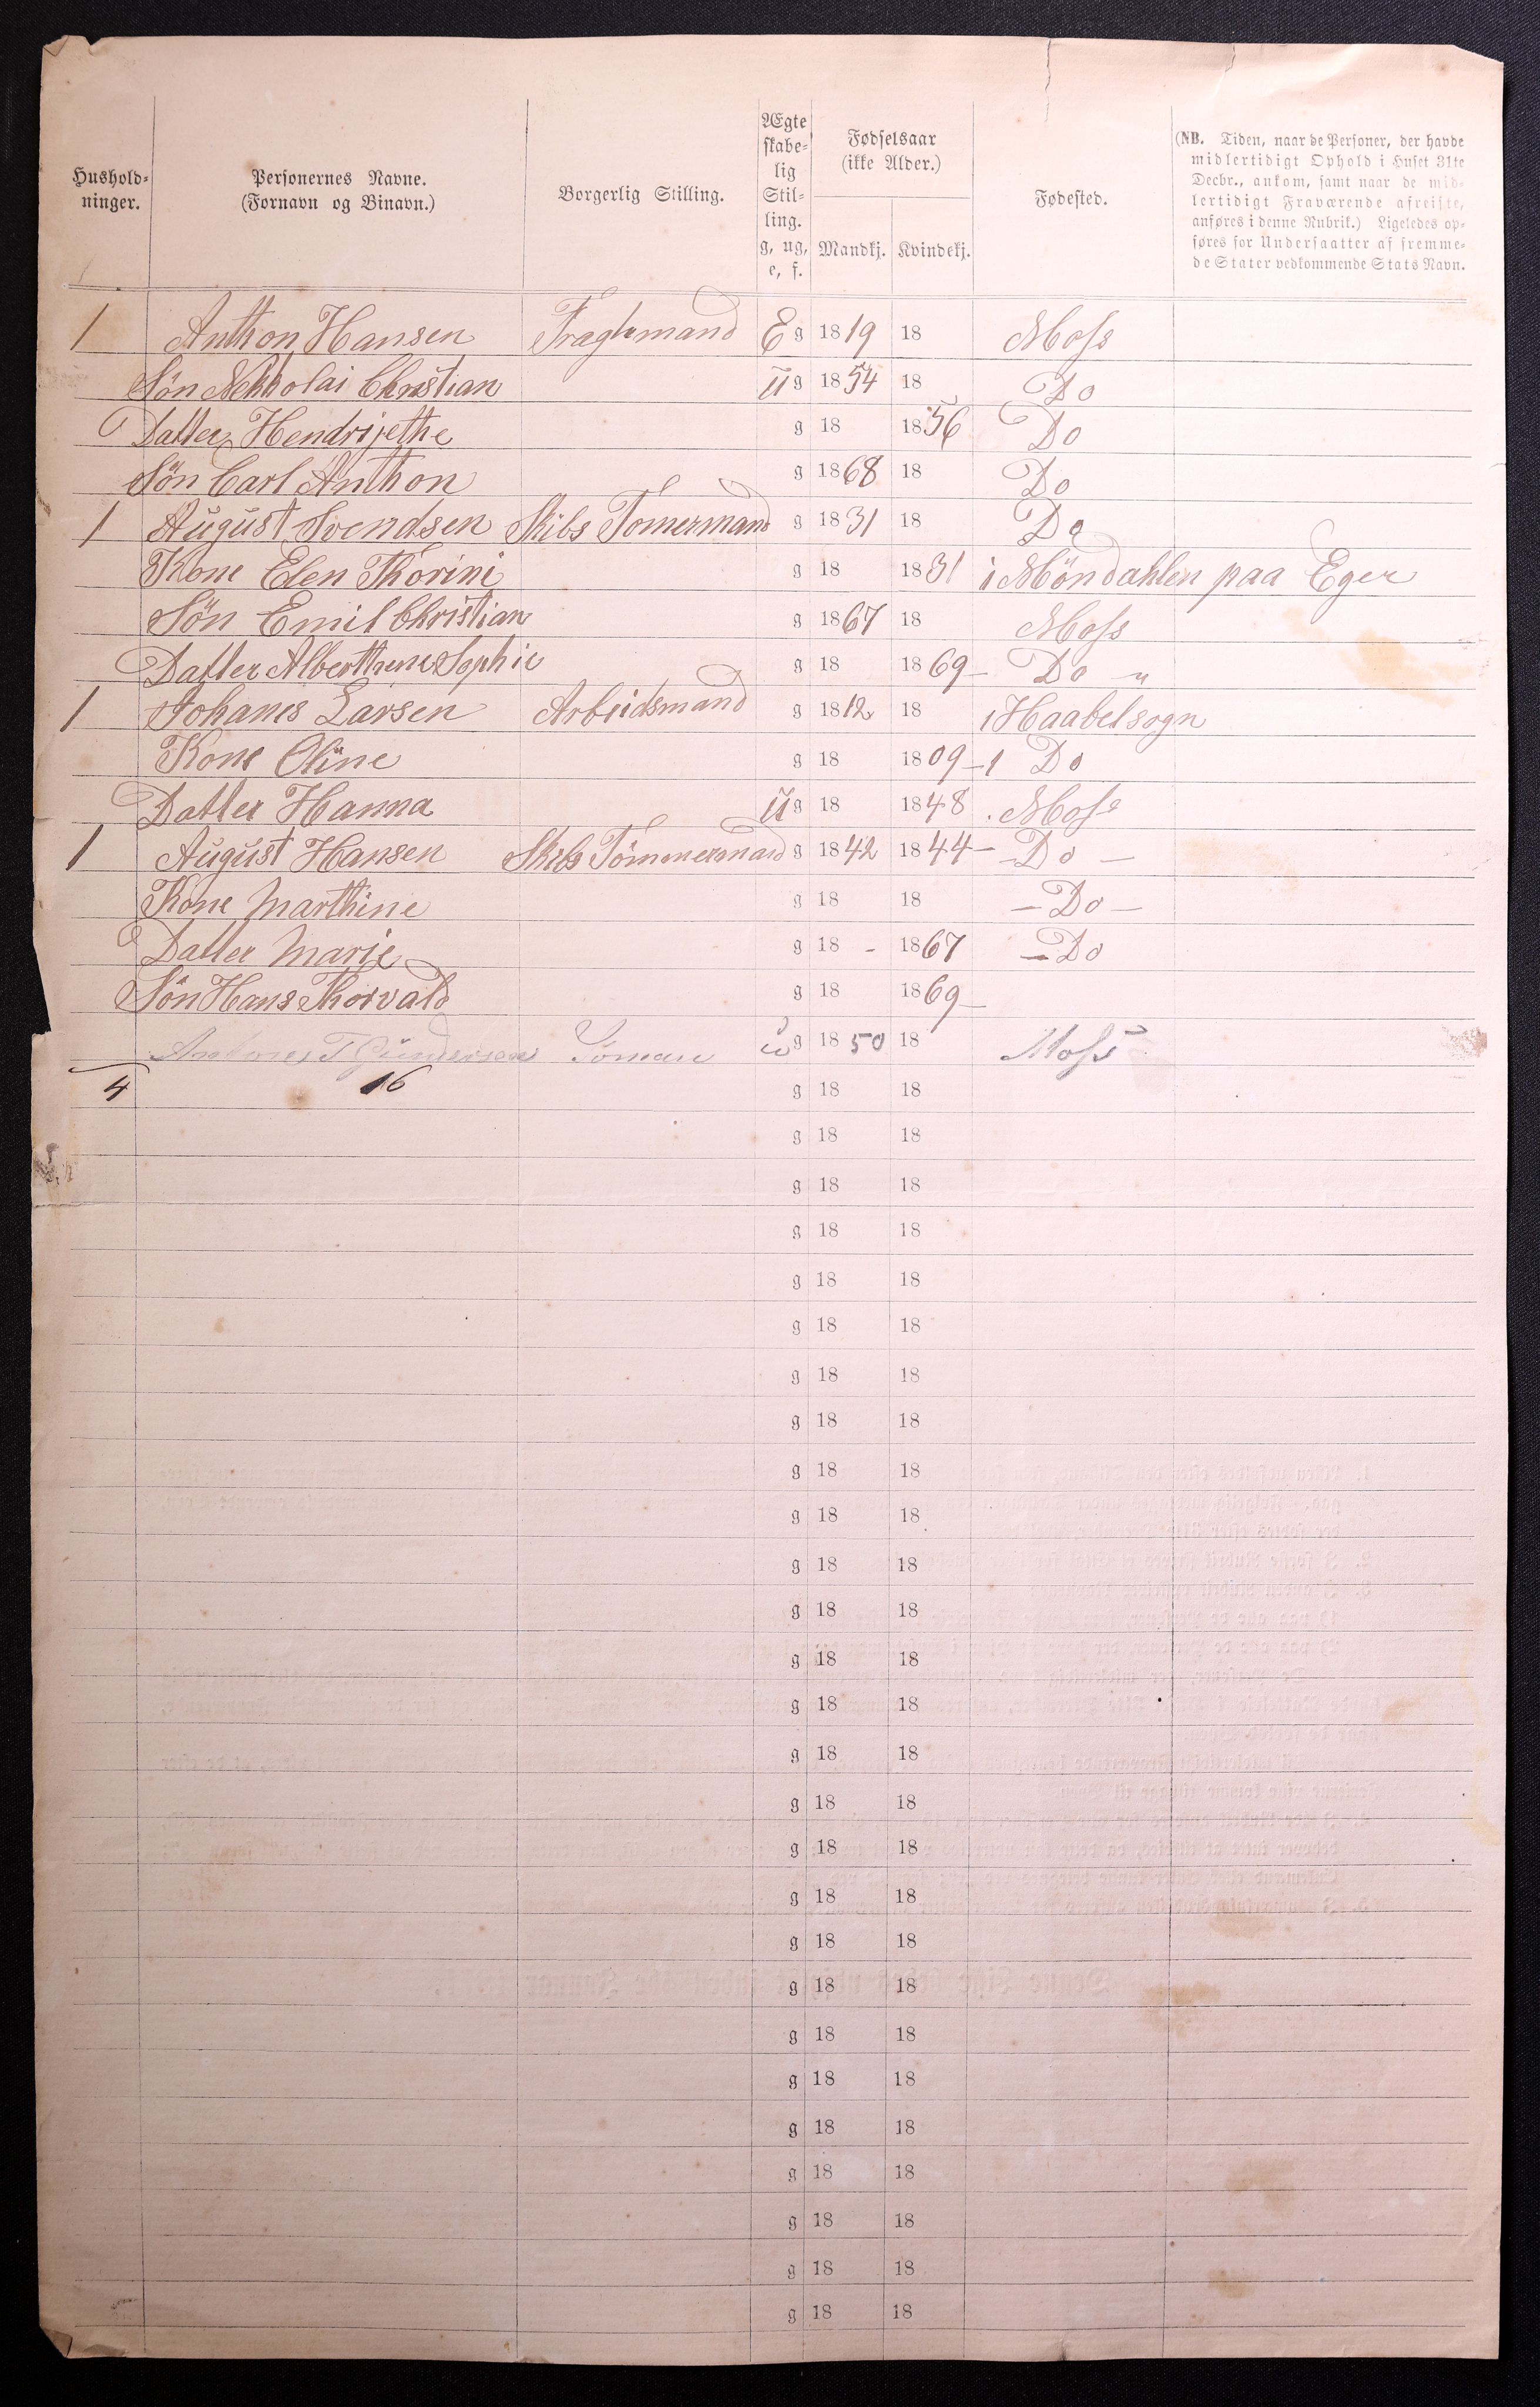 Hushold-
ninger.
Personernes Navne.
(Fornavn og Binavn.)
Borgerlig Stilling.
Ægte
skabe-
lig
Stil-
ling.
g, ug,
e, f.
Fødselsaar
(ikke Alder.)
Mandkj. Kvindekj.
Fødested.
(NB. Tiden, naar de Personer, der havde
midlertidigt Ophold i Huset 31te
Decbr., ankom, samt naar de mid-
lertidigt Fraværende afreiste,
anføres i denne Rubrik.) Ligeledes op-
føres for Undersaatter af fremme-
de Stater vedkommende Stats Navn.
1 Anthon Hansen Fragtmand E g 1819 18 Moss
Søn Nikkolai Christian u g 1854 18 Do
Datter Hendrijethe g 18 1856 Do
Søn Carl Anthon g 1868 18 Do
1 August Svendsen Skibs Tømermand g 1831 18 Do
Kone Elen Thorini g 18 1831 i Möndahlen paa Eger
Søn Emil Christian g 1867 18 Moss
Datter Alberthine Sophie g 18 1869 - Do - "
1 Johanes Larsen Arbeidsmand g 1812 18 i Haabel sogn
Kone Oline g 18 1809 - i Do
Datter Hanna u g 18 1848 . Moss
1 August Hansen Skibs Tømmermand g 1842 1844 - - Do -
Kone Marthine g 18 18 - Do -
Datter Marie g 18 - 1867 - Do
Søn Hans Thorvald g 18 1869 -
T Gundersen Sømand u g 1850 18 Moss
4 16 g 18 18
g 18 18
g 18 18
g 18 18
g 18 18
g 18 18
g 18 18
g 18 18
g 18 18
g 18 18
g 18 18
g 18 18
g 18 18
g 18 18
g 18 18
g 18 18
g 18 18
g 18 18
g 18 18
g 18 18
g 18 18
g 18 18
g 18 18
g 18 18
g 18 18
g 18 18
g 18 18